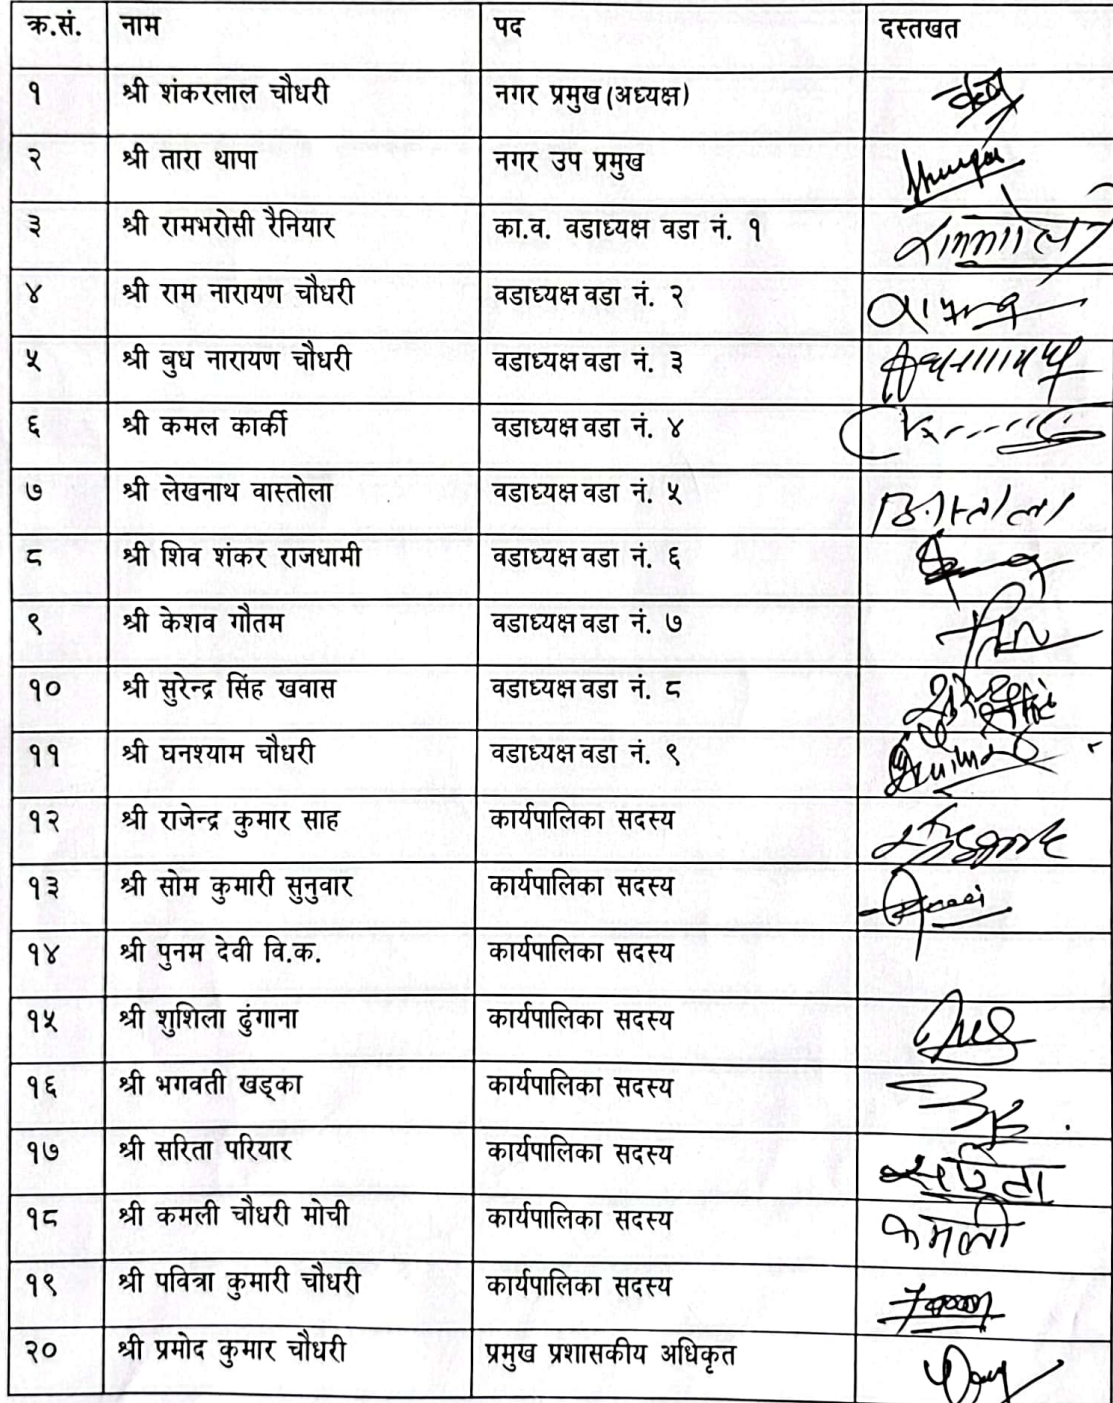 क्र.सं. नाम पद दस्तखत
१ श्री शंकरलाल चौधरी नगर प्रमुख (अध्यक्ष)
२ श्री तारा थापा नगर उप प्रमुख
३ श्री रामभरोसी रैनियार का.व. वडाध्यक्ष वडा नं. १
४ श्री राम नारायण चौधरी वडाध्यक्ष वडा नं. २
५ श्री बुध नारायण चौधरी वडाध्यक्ष वडा नं. ३
६ श्री कमल कार्की वडाध्यक्ष वडा नं. ४
७ श्री लेखनाथ वास्तोला वडाध्यक्ष वडा नं. ५
८ श्री शिव शंकर राजधामी वडाध्यक्ष वडा नं. ६
९ श्री केशव गौतम वडाध्यक्ष वडा नं. ७
१० श्री सुरेन्द्र सिंह खवास वडाध्यक्ष वडा नं. ८
११ श्री घनश्याम चौधरी वडाध्यक्ष वडा नं. ९
१२ श्री राजेन्द्र कुमार साह कार्यपालिका सदस्य
१३ श्री सोम कुमारी सुनुवार कार्यपालिका सदस्य
१४ श्री पुनम देवी वि.क. कार्यपालिका सदस्य
१५ श्री शुशिला ढुंगाना कार्यपालिका सदस्य
१६ श्री भगवती खड्का कार्यपालिका सदस्य
१७ श्री सरिता परियार कार्यपालिका सदस्य सरिता
१८ श्री कमली चौधरी मोची कार्यपालिका सदस्य कमली
१९ श्री पवित्रा कुमारी चौधरी कार्यपालिका सदस्य
२० श्री प्रमोद कुमार चौधरी प्रमुख प्रशासकीय अधिकृत